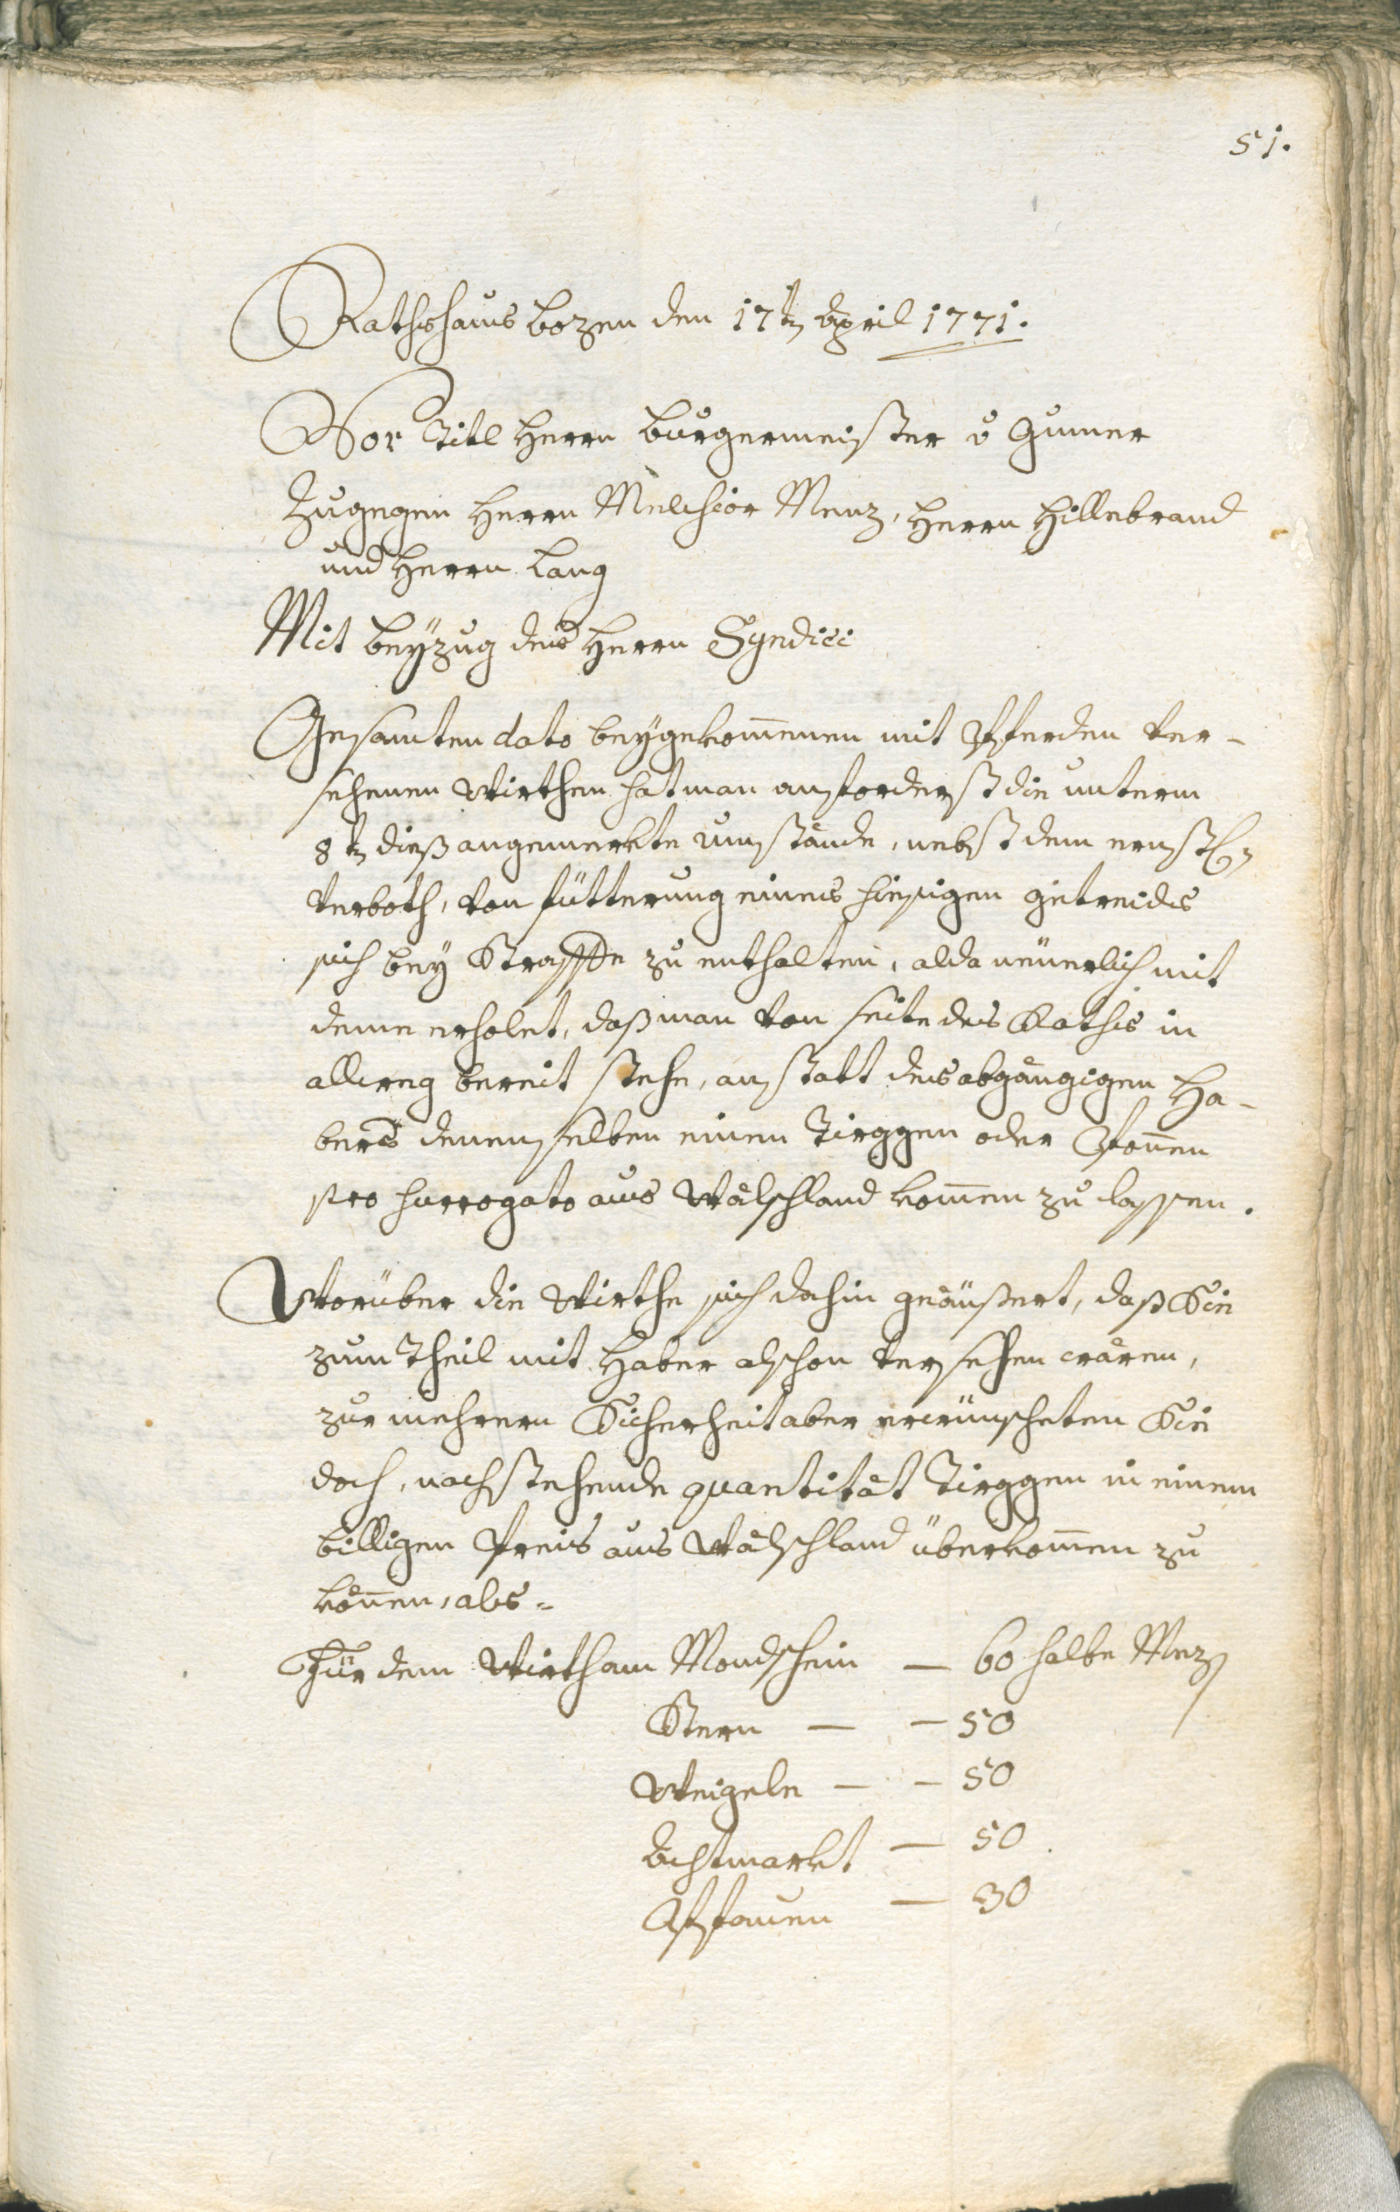 51.
Rathshaus Bozen den 17tn April 1771.
Vor Titl Herrn Burgermeister v Gumer
Zugegen Herrn Melchior Menz, Herrn Hillebrand
und Herrn Lang
Mit Beyzug des Herrn Syndici
Gesamten dato beygekom̄enen mit Pferden ver-
sehenen Wirthen hat man anforderst die unterm
8tn dieß angemerkte Umstände, nebst dem ernstl.
Verboth, von fütterung eines hiesigen getreides
sich bey Straffe zu enthalten, alda neuerlich mit
deme erholet, daß man von seite des Raths in
allweg bereit stehe, anstatt des abgängigen Ha-
bers denenselben einen Tirggen oder Bonen
pro surrogato aus Wälschland kom̄en zu lassen.
Worüber die Wirthe sich dahin geäußert, daß Sie
zum Theil mit Haber alschon versehen wären,
zur mehrern Sicherheit aber erwünscheten Sie
doch, nachstehende quantität Tirggen in einem
billigen Preis aus Wälschland überkom̄en zu
kön̄en, als-
Für dem Wirth am Mondschein — 60 halbe Mez
Stern — — 50
Weigele — — 50
Achtmarkt — 50.
Pfauen — 30